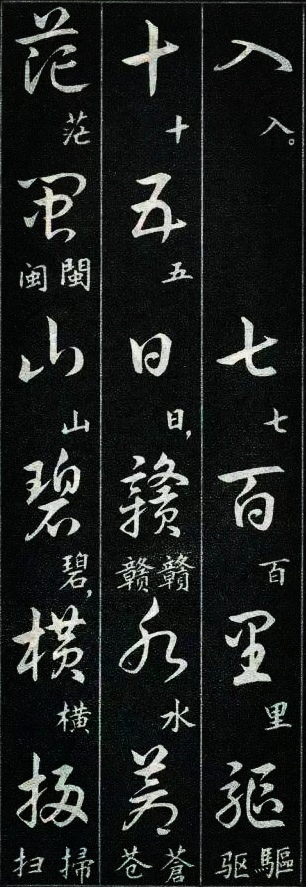 入 入。 七 七 百 百 里 里 驱 驱 驅
十 十 五 五 日 日, 赣 赣 贛 水 水 苍 苍 蒼
茫 茫 闽 闽 閩 山 山 碧 碧, 横 横 扫 扫 掃